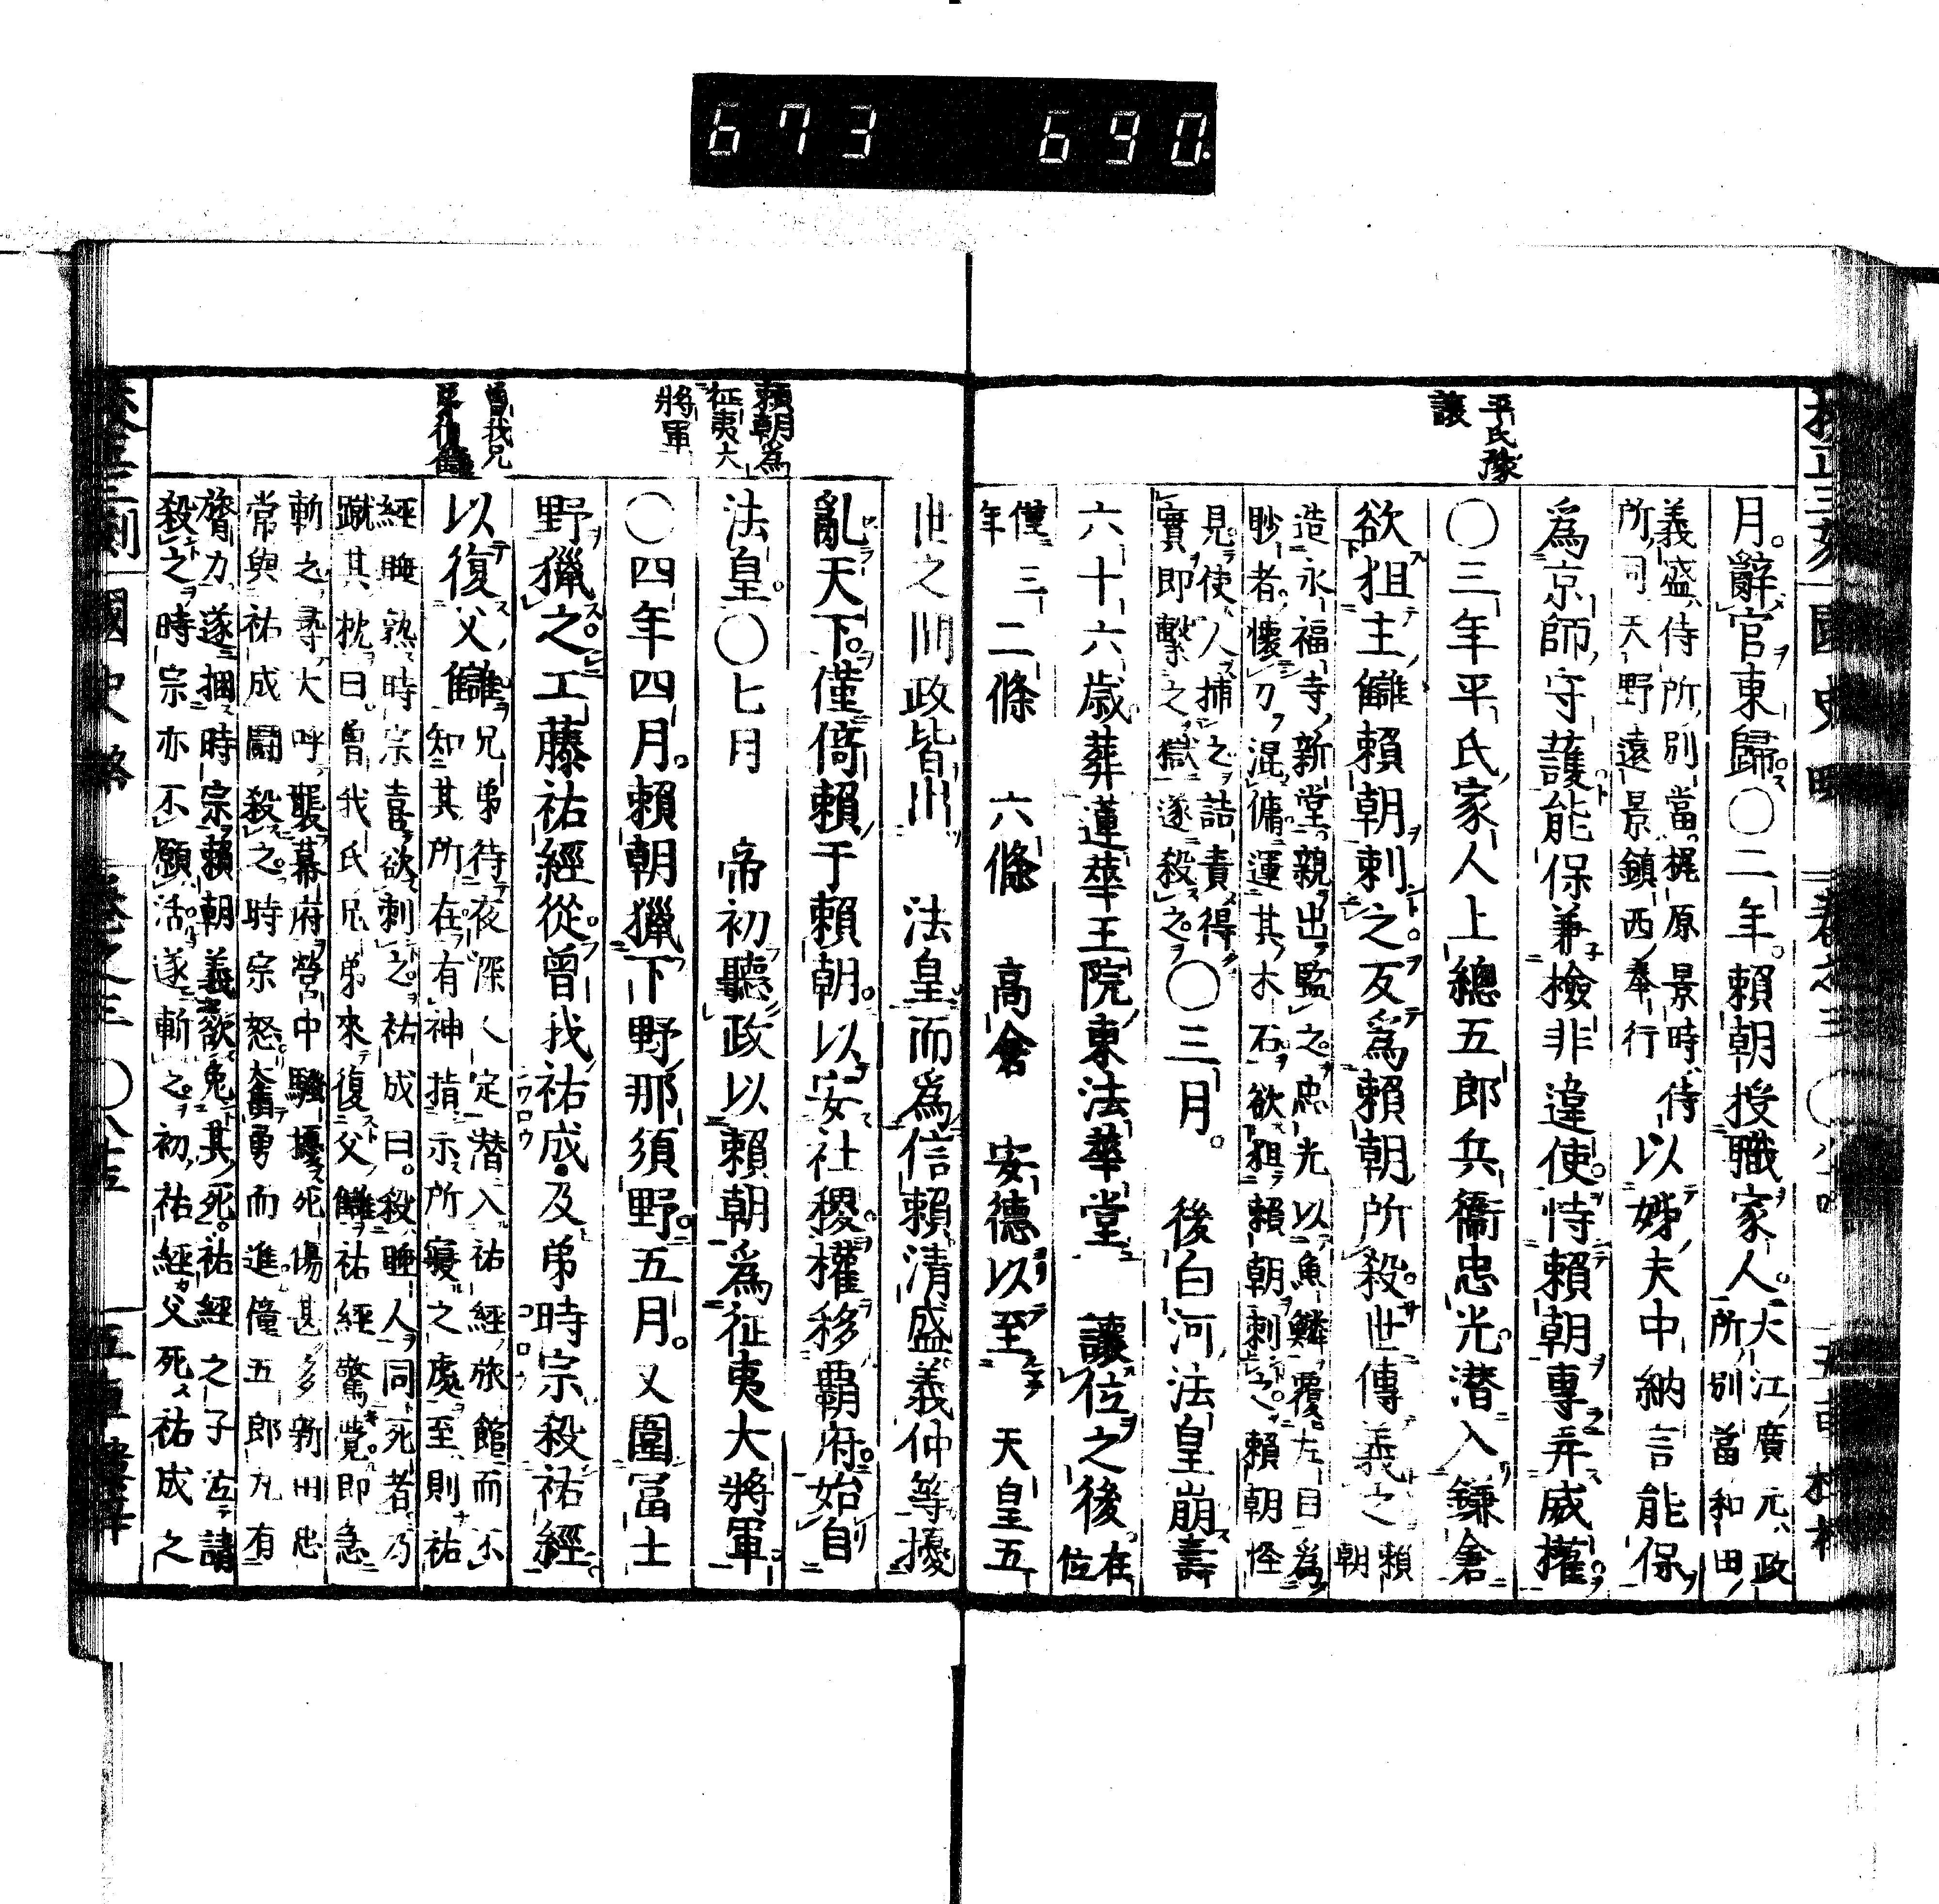 673 690
平氏豫
讓
月。辭官東歸。〇二年。賴朝授職家人。大江廣元、政
所別當和田
義盛、侍所別當。梶原景時、侍
所司天野遠景鎮西奉行
以姊夫中納言能保
爲京師守護能保兼撿非違使。恃賴朝專弄威權。
〇三年平氏家人上總五郎兵衞忠光潜入鎌倉
欲狙主讎賴朝刺之。反爲賴朝所殺。世傳義之
賴
朝
造永福寺新堂。親出監之。忠光以魚鱗覆左目爲
眇者。懷刀混傭運其木石。欲狙賴朝刺之。賴朝怪
見。使人捕之詰責得
實即繫之獄遂殺之。
〇三月。後白河法皇崩壽
六十六歲葬蓮華王院東法華堂
讓位之後。在
位
僅
年
三二條 六條 高倉 安德以至 天皇五
世之間政皆出 法皇而爲信賴清盛義仲等擾
亂天下。僅倚賴于賴朝。以安社稷權移覇府。始自
法皇。〇七月 帝初聽政以賴朝爲征夷大將軍
賴朝爲
征夷大
將軍
〇四年四月。賴朝獵下野那須野。五月。又圍冨士
野獵之。工藤祐經從。曾我祐成。及弟時宗殺祐經。
曾我兄
弟復讎
以復父讎
兄弟待夜深人定潜入祐經旅館而不
知其所在有神指示所寢之處至則祐
經睡熟時宗喜欲刺之祐成曰。殺睡人同死者乃
蹴其枕曰。曾我氏兄弟來復父讎祐經驚覺。即急
斬之尋大呼襲幕府營中騷擾死傷甚多新田忠
常與祐成鬪殺之。時宗怒奮勇而進僮五郎丸有
膂力遂捆時宗賴朝義欲免其死。祐經之子泣請
殺之時宗亦不願活遂斬之。初祐經父死祐成之
國史略 卷之三 〇